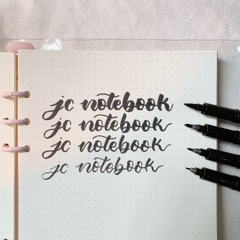 jc notebook
jc notebook
jc notebook
jc notebook